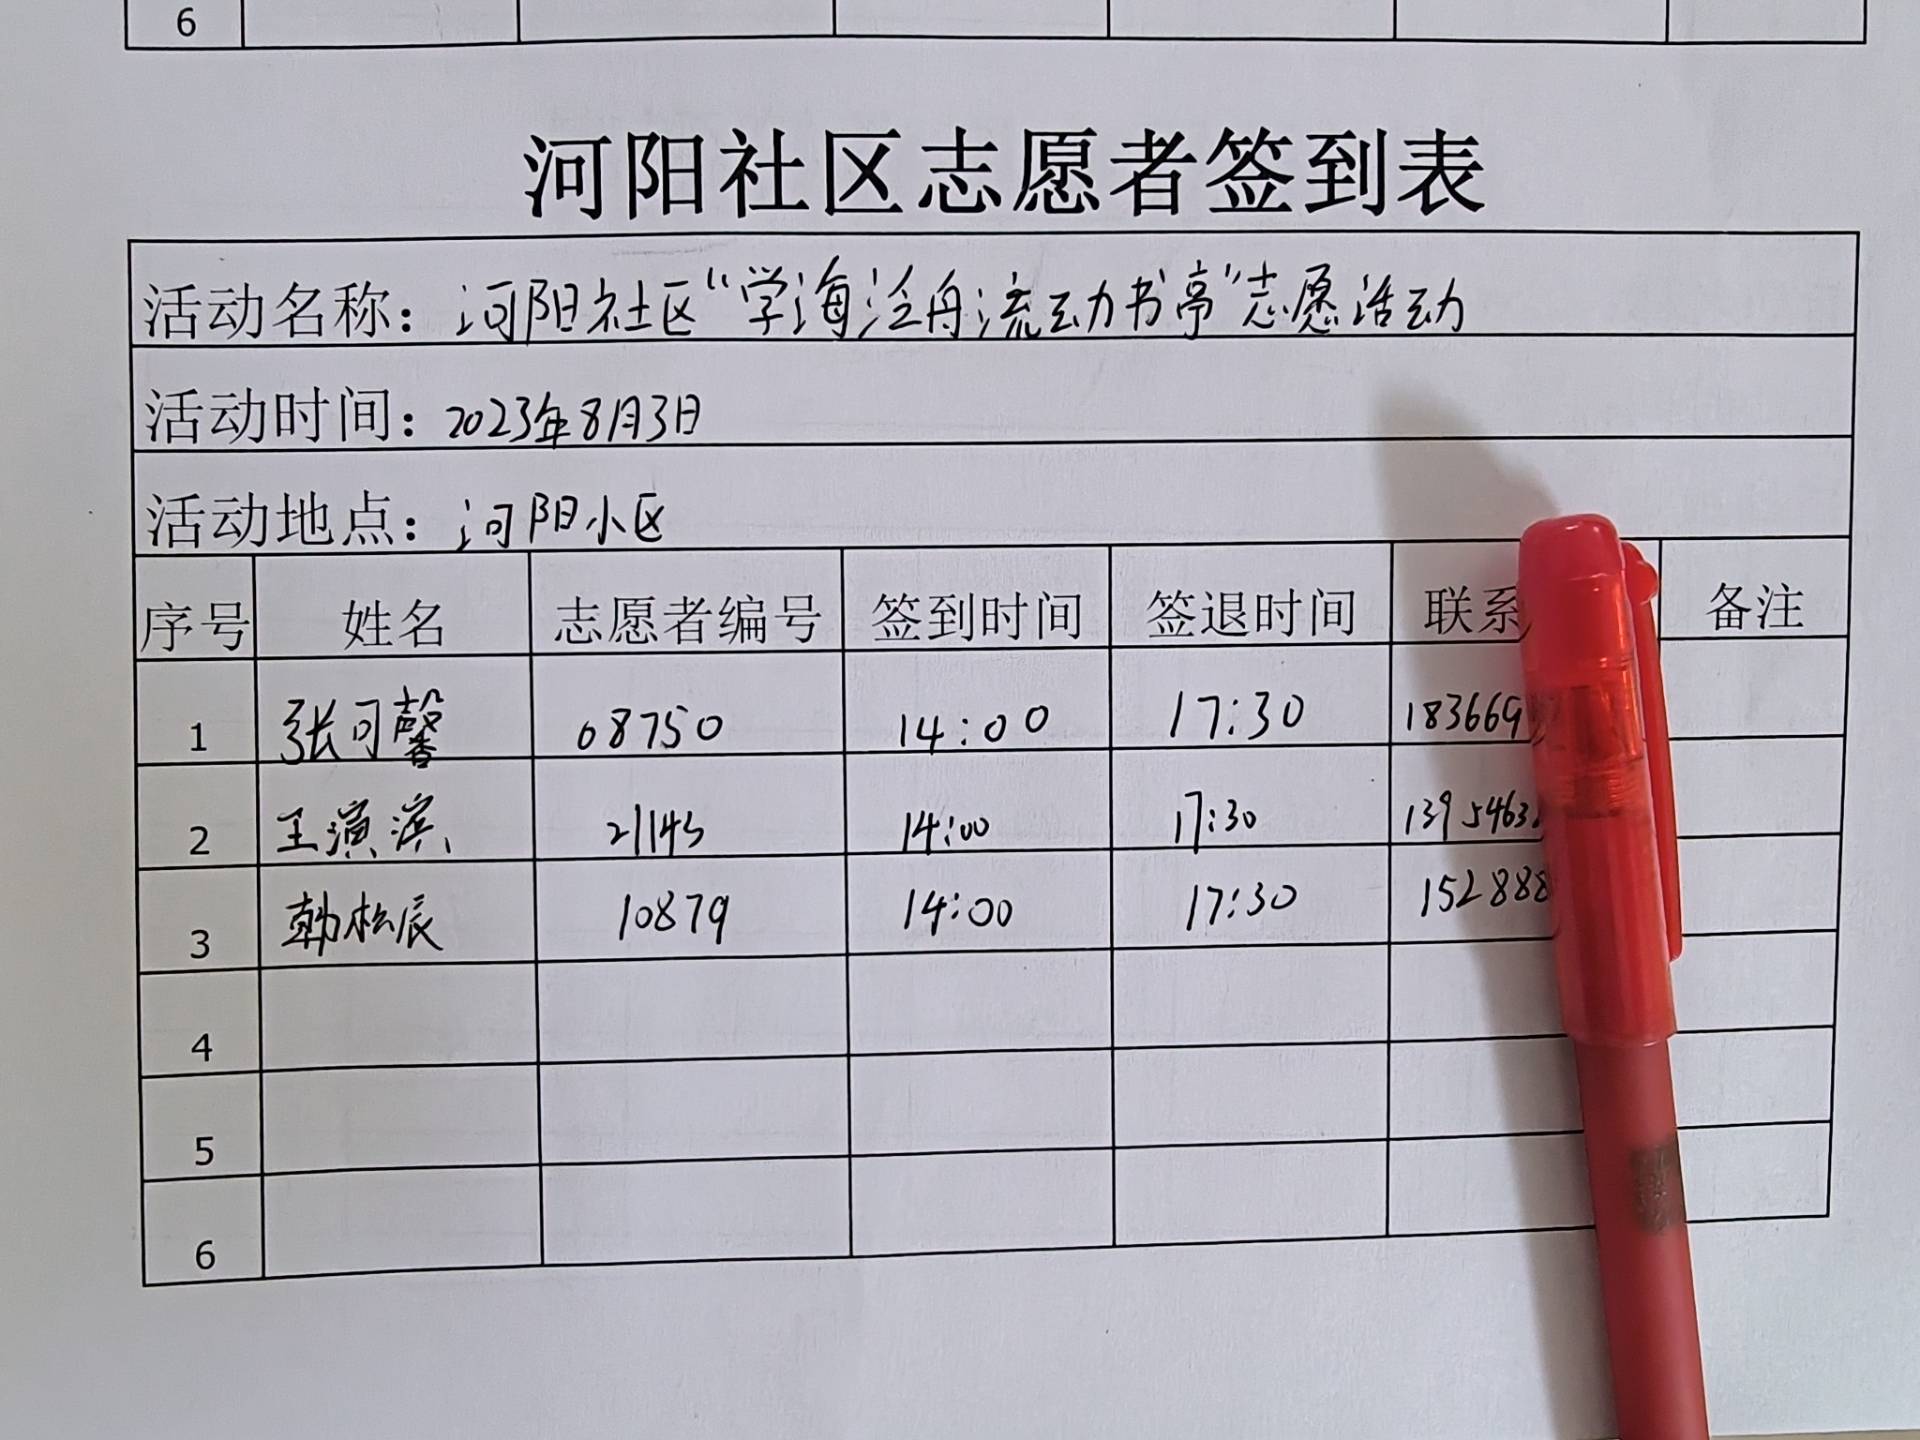 6
河阳社区志愿者签到表
活动名称：河阳社区“学海泛舟流动书亭”志愿活动
活动时间：2023年8月3日
活动地点：河阳小区
序号 姓名 志愿者编号 签到时间 签退时间 联系 备注
1 张可馨 08750 14:00 17:30 183669
2 王演滨 21143 14:00 17:30 1395463
3 韩松辰 10879 14:00 17:30 152888
4
5
6